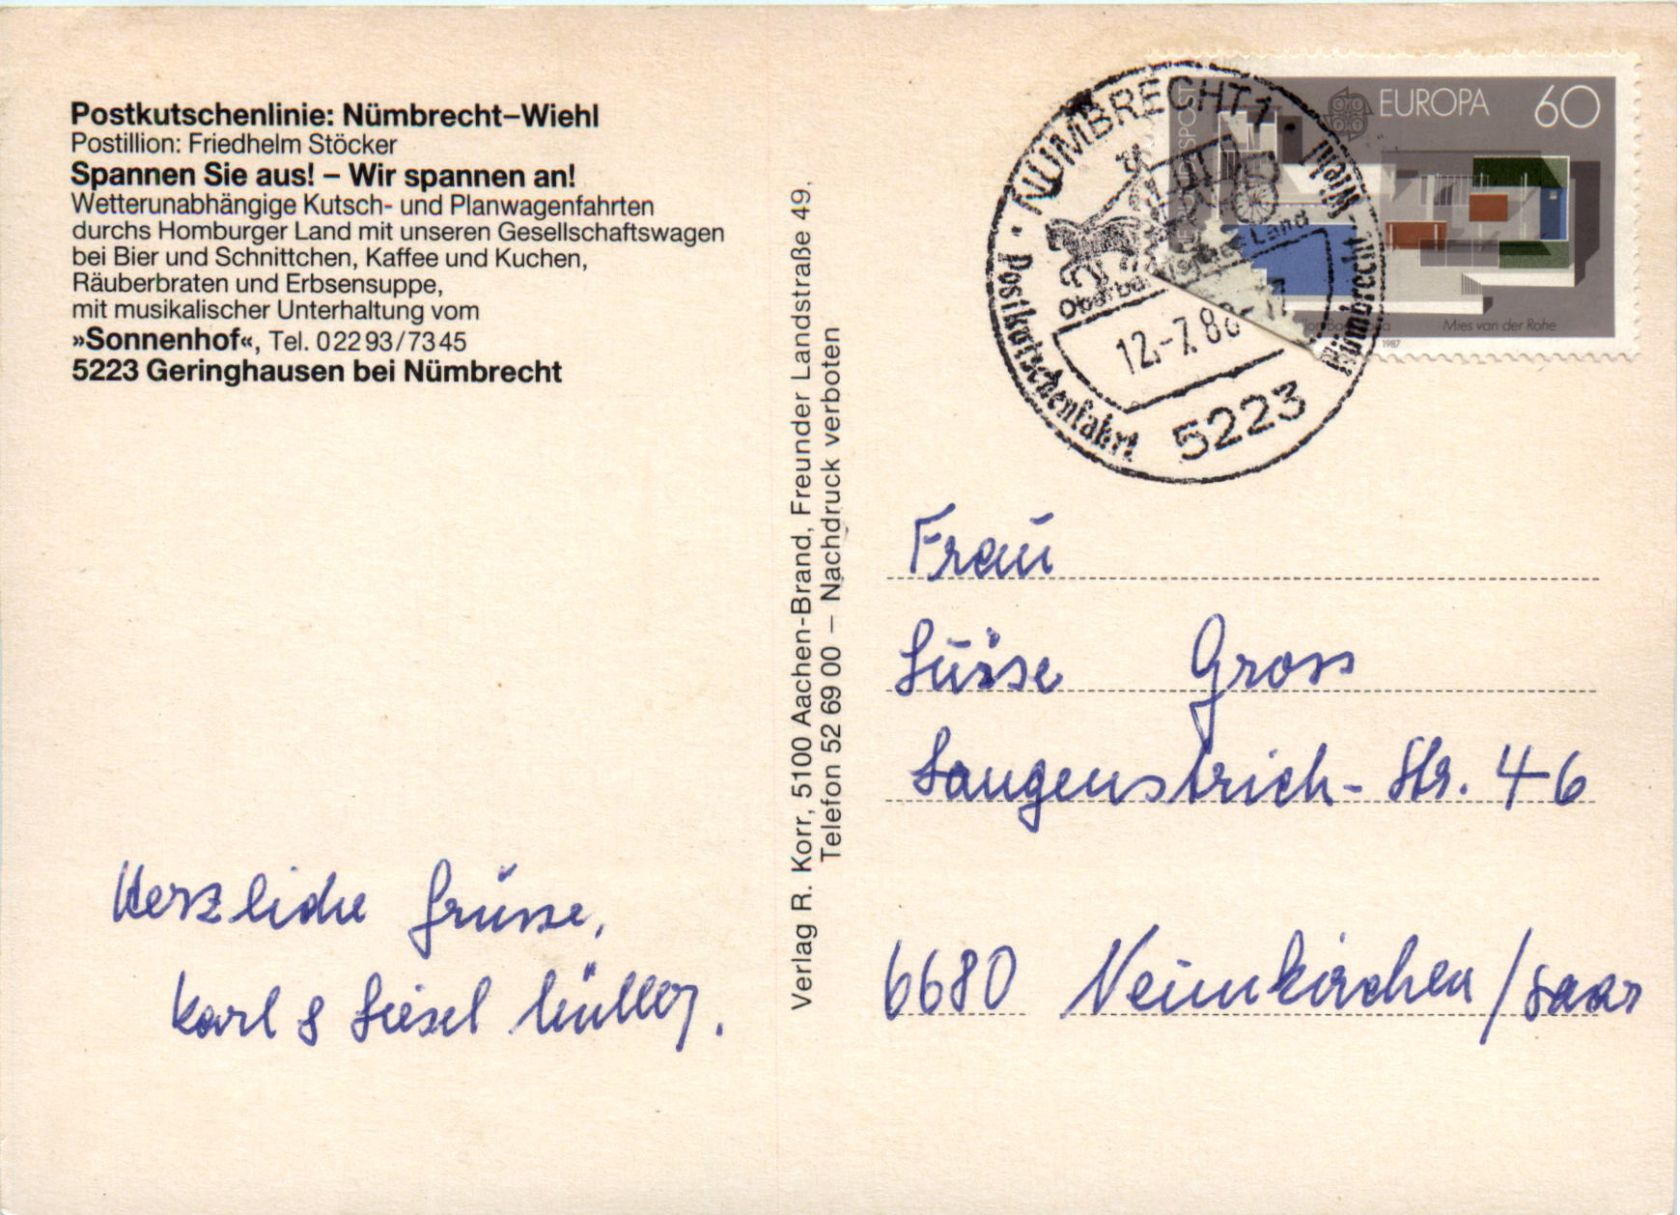 Postkutschenlinie: Nümbrecht–Wiehl
Postillion: Friedhelm Stöcker
Spannen Sie aus! – Wir spannen an!
Wetterunabhängige Kutsch- und Planwagenfahrten
durchs Homburger Land mit unseren Gesellschaftswagen
bei Bier und Schnittchen, Kaffee und Kuchen,
Räuberbraten und Erbsensuppe,
mit musikalischer Unterhaltung vom
»Sonnenhof«, Tel. 02293/7345
5223 Geringhausen bei Nümbrecht
Herzliche Grüsse,
Karl & Liesel Müller.
Verlag R. Korr, 5100 Aachen-Brand, Freunder Landstraße 49,
Telefon 52 69 00 – Nachdruck verboten
NÜMBRECHT 1
Postkutschenfahrt
Wiehl-Nümbrecht
12.-7.88
5223
EUROPA 60
Mies van der Rohe
1987
Frau
Luise Gross
Langenstrich-Str. 46
6680 Neunkirchen/Saar